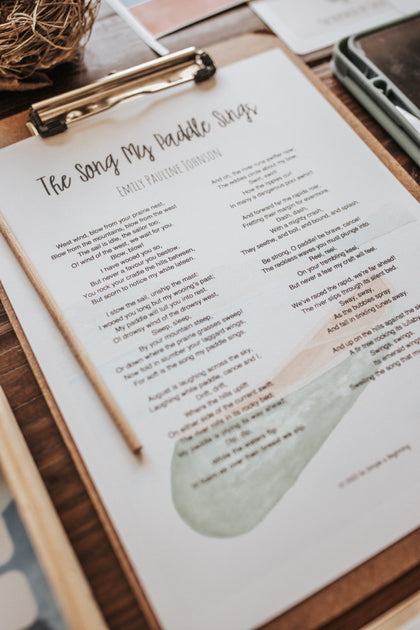 The Song My Paddle Sings
Emily Pauline Johnson
West wind, blow from your prairie nest,
Blow from the mountains, blow from the west
The sail is idle, the sailor too;
O! wind of the west, we wait for you.
Blow, blow!
I have wooed you so,
But never a favour you bestow.
You rock your cradle the hills between,
But scorn to notice my white lateen.
I stow the sail, unship the mast:
I wooed you long but my wooing's past;
My paddle will lull you into rest.
O! drowsy wind of the drowsy west,
Sleep, sleep,
By your mountain steep,
Or down where the prairie grasses sweep!
Now fold in slumber your laggard wings,
For soft is the song my paddle sings.
August is laughing across the sky,
Laughing while paddle, canoe and I,
Drift, drift,
Where the hills uplift
On either side of the current swift.
The river rolls in its rocky bed;
My paddle is plying its way ahead;
Dip, dip,
While the waters flip
In foam as over their breast we slip.
And oh, the river runs swifter now;
The eddies circle about my bow.
Swirl, swirl!
How the ripples curl
In many a dangerous pool awhirl!
And forward far the rapids roar,
Fretting their margin
Dash, dash,
With a mighty crash,
They seethe, and boil, and bound, and splash.
Be strong, O paddle! be brave, canoe!
The reckless waves you must plunge into.
Reel, reel.
On your trembling keel,
But never a fear my craft will feel.
We've raced the rapid, we're far ahead!
The river slips through its silent bed.
Sway, sway,
As the bubbles spray
And fall in tinkling tunes away.
And up on the hills against the
Swings, swings